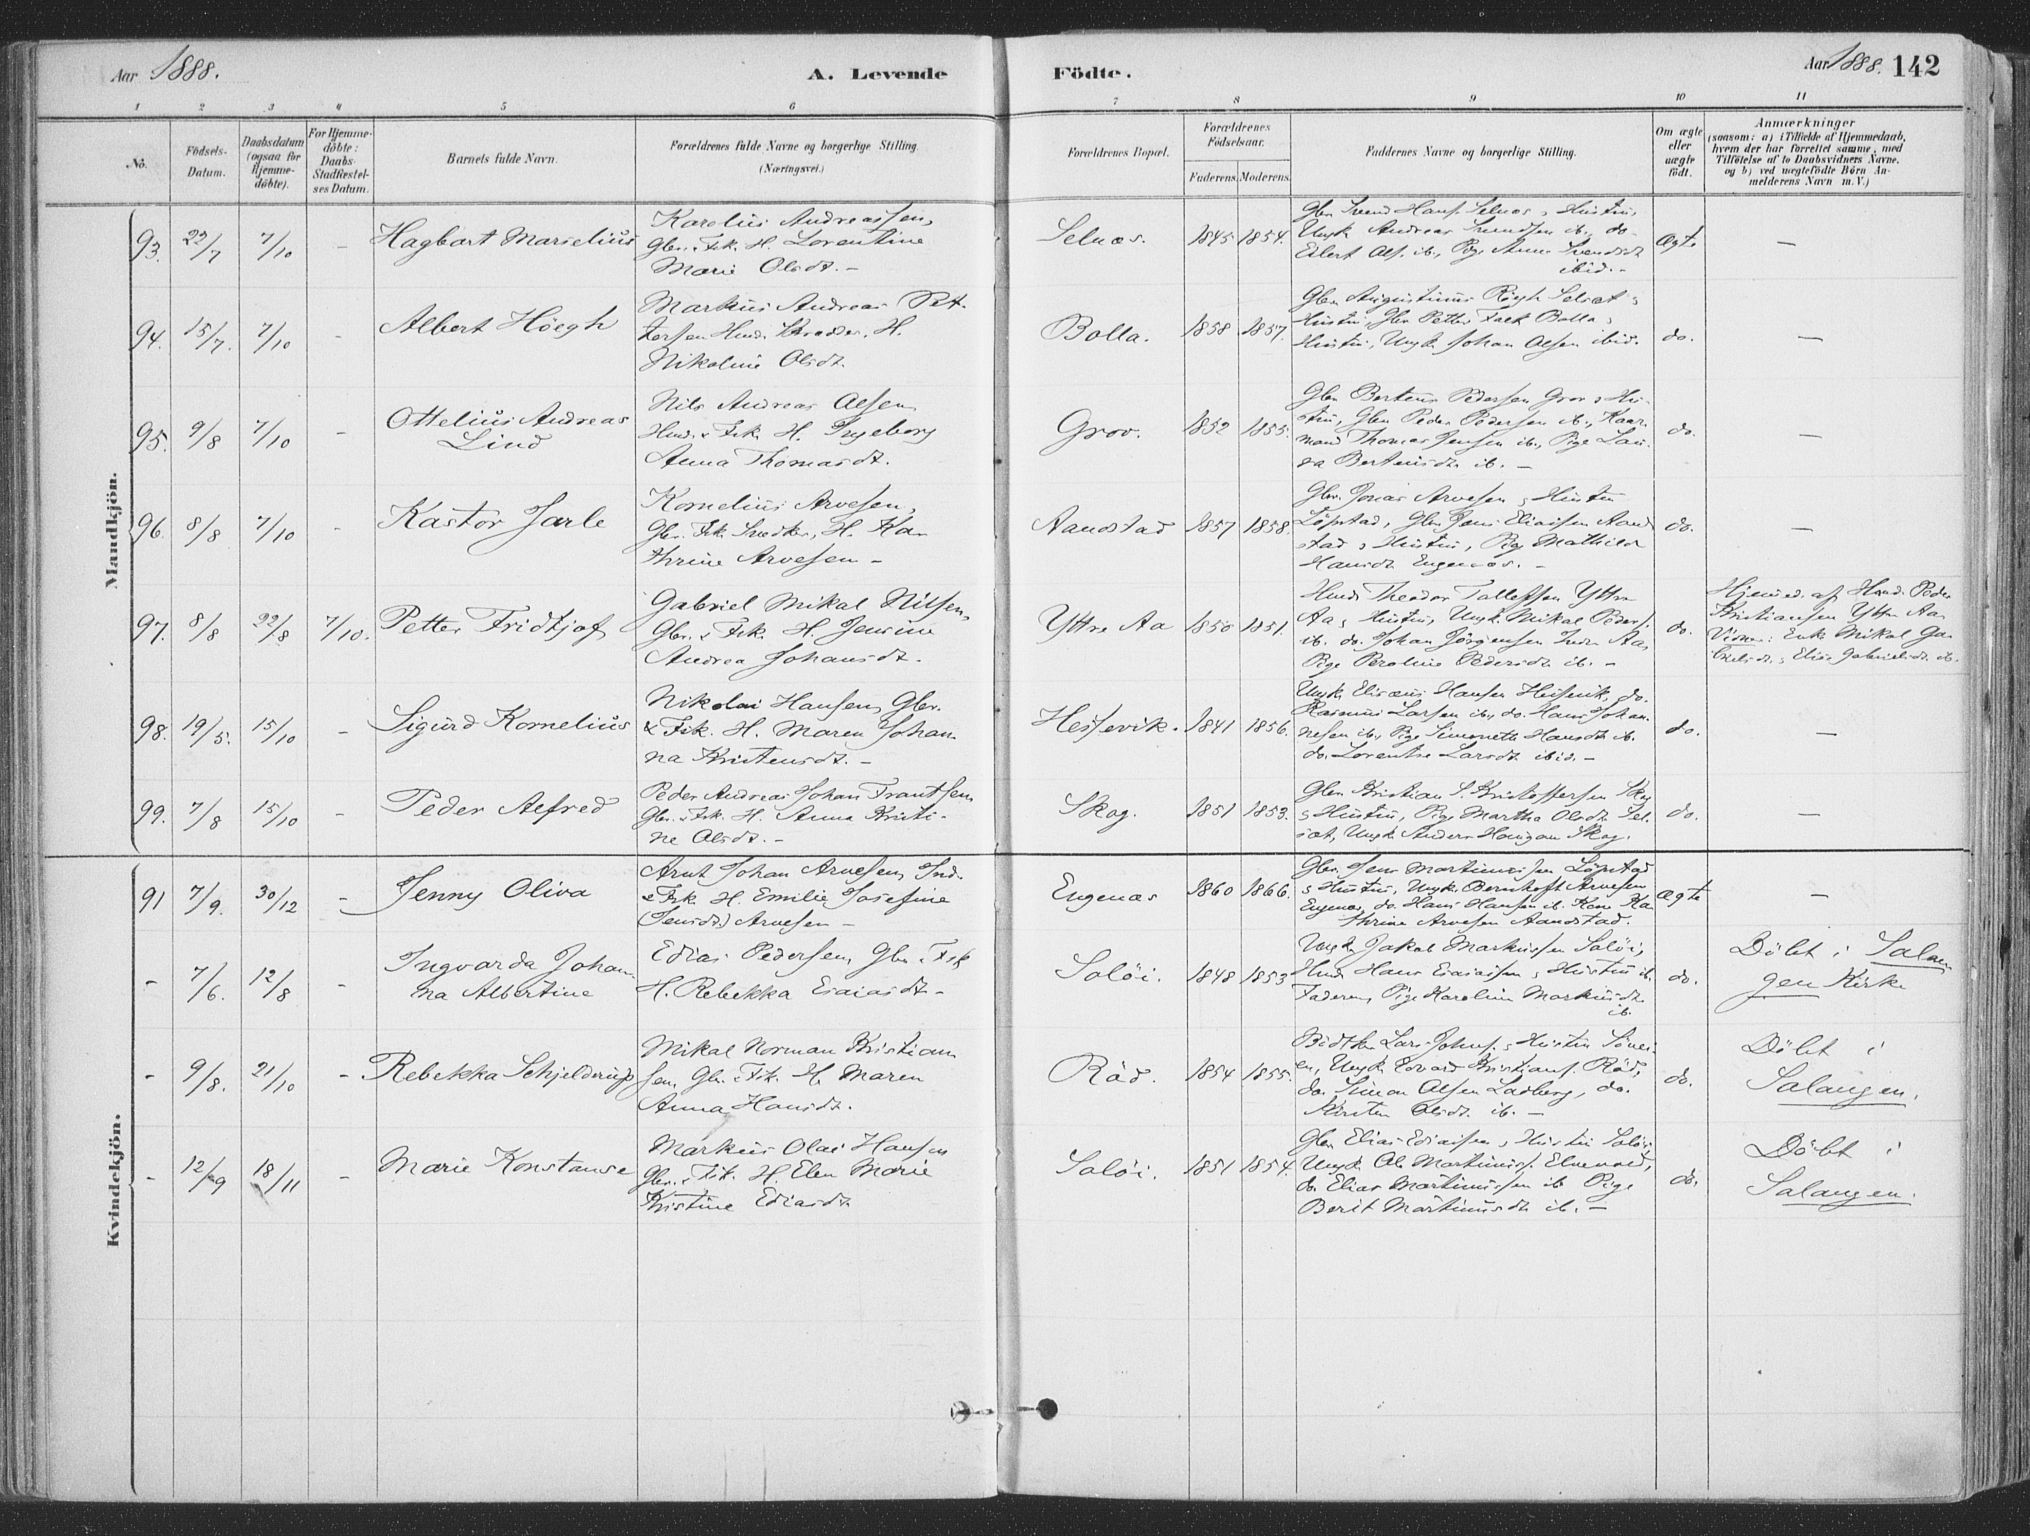 Aar 1888.
A. Levende Födte.
Aar 1888. 142
1 2 3 4 5 6 7 8 9 10 11
No.
Födsels-
Datum.
Daabsdatum
(ogsaa for
Hjemme-
döbte).
For Hjemme-
döbte:
Daabs-
Stadfæstel-
ses Datum.
Barnets fulde Navn.
Forældrenes fulde Navne og borgerlige Stilling.
(Næringsvei.)
Forældrenes Bopæl.
Forældrenes
Födselsaar.
Faderens. Moderens.
Faddernes Navne og borgerlige Stilling.
Om ægte
eller
uægte
födt.
Anmærkninger
(saasom: a) i Tilfælde af Hjemmedaab,
hvem der har forrettet samme, med
Tilföielse af to Daabsvidners Navne.
og b) ved uægtefödte Börn An-
melderens Navn m. V.)
Mandkjön.
93. 22/7 7/10 - Hagbart Marselius
Karolius Andreassen,
Gbr. & Fsk. H. Lorentine
Marie Olsdt. -
Selnæs. 1845 1854.
Gbr. Svend Hans. Selnæs & Hustru,
Ungk. Andreas Svendsen ib., do.
Eilert Ols. ib., Pige Anna Svendsdt
ibid. -
Ægte -
94. 15/7. 7/10 - Albert Höegh
Markus Andreas Pet-
tersen H.
Nikoline Olsdt.
Bolla. 1858 1857.
Hustru, Gbr. Petter Falk Bolla &
Hustru, Ungk. Johan Olsen ibid.
do. -
95. 9/8 7/10 - Ottelius Andreas
Lind
Nils Andreas Olsen,
Hmd. & Fsk. H. Ingeborg
Anna Thomasdt.
Grov. 1852 1855.
Gbr. Berteus Pedersen Grov & Hu-
stru, Gbr. Peder Pedersen ib., Kaar-
mand Thomas Jensen ib., Pige Lau-
ra Berteusdt. ib. -
do. -
96. 8/8 7/10 - Kastor Jarle
Kornelius Arvesen,
Gbr. Fsk. H. Ka-
thrine Arvesen -
Aandstad 1857 1858.
Gbr. Jonas Arvesen & Hustru
Löpstad, Gbr. Jens Eliassen Aand-
stad & Hustru, Pige Mathilde
Hansdt. Engenæs. -
do. -
97. 8/8 22/8 7/10. Petter Fridtjof
Gabriel Mikal Nilsen,
Gbr. & Fsk. H. Jensine
Andrea Johansdt.
Yttre Aa 1850 1851.
Hmd. Theodor Tollefsen Yttre
Aa & Hustru, Ungk. Mikal Peders.
ib. do. Johan Jörgensen Indre Aa,
Pige Peroline Pedersdt. ib. -
do.
Hjemmed. af Hmd. Peder
Kristiansen Yttre Aa
Vidner: Enke Mikal Ga-
Elise Gabrielsdt. ib.
98. 19/5. 15/10 - Sigurd Kornelius
Nikolai Hansen, Gbr.
& Fsk. H. Maren Johan-
na Kristensdt. -
Hessevik. 1841 1856.
Ungk. Elisæus Hansen Hessevik, do.
Rasmus Larsen ib., do. Hans Johan-
nesen ib., Pige Simonette Hansdt. ib.
do. Lorentse Larsdt. ibid. -
do. -
99. 7/8 15/10 - Peder Alfred
Peder Andreas Johan Frantsen,
Gbr. & Fsk. H. Anna Kristi-
ne Olsdt. -
Skog. 1851 1853.
Gbr. Kristian S. Kristoffersen Skog
& Hustru, Pige Martha Olsdt. Sel-
sæt, Ungk. Anders Haugan Skog.
do. -
Kvindekjön.
91 7/9. 30/12 - Jenny Oliva
Arnt Johan Arvesen, Ind.
& Fsk. H. Emilie Josefine
(Jensdt.) Arvesen -
Engenæs 1860 1866.
Gbr. Jens Martinussen Löpstad
& Hustru, Ungk. Bernhoft Arvesen
Engenæs, do. Hans Hansen ib. Kone Ka-
thrine Arvesen Aandstad.
Ægte -
- 7/6. 12/8 - Ingvarda Johan-
na Albertine
Edias Pedersen, Gbr. & Fsk
H. Rebekka Esaiasdt. -
Salöi. 1848 1853
Ungk. Jakob Markussen Salöi,
Hmd. Hans Esaiassen & Hustru ib.
Faderen, Pige Karoline Markusdt.
ib.
do.
Döbt i Salan-
gen Kirke
- 9/8. 21/10 - Rebekka Schjelderup
Mikal Norman Kristian-
sen, Gbr. & Fsk. H. Maren
Anna Hansdt.
Röd. 1854 1855.
Lars Johns. & Hustru
Ungk. Edvard Kristians. Röd,
do. Simon Olsen Ladberg, do.
Kirsten Olsdt. ib. -
do.
Döbt i
Salangen.
- 12/9 18/11 - Marie Konstanse
Markus Olai Hansen
Gbr. & Fsk. H. Elen Marie
Kristine Ediasdt.
Salöi. 1851 1854.
Gbr. Elias Esaiassen & Hustru Salöi,
Ungk. Ole Martinuss. Elvevold,
do. Elias Martinussen ib. Pige
Berit Martinusdt. ib. -
do.
Döbt i
Salangen.